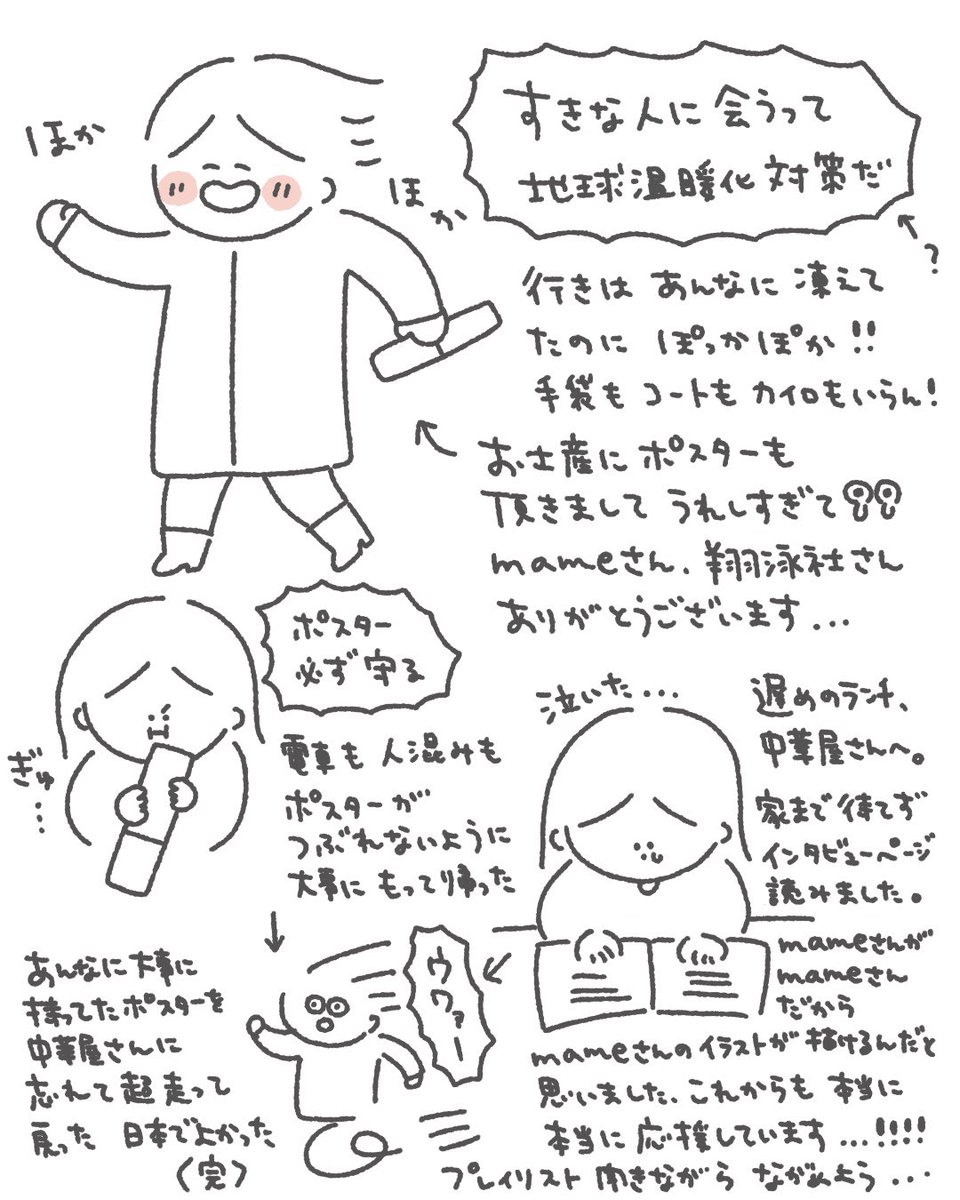 ほか
ほか
すきな人に会うって
地球温暖化対策だ
?
行きは あんなに 凍えて
たのに ぽっかぽか!!
手袋も コートも カイロもいらん!
お土産に ポスターも
頂きまして うれしすぎて
mameさん、翔泳社さん
ありがとうございます...
ポスター
必ず守る
ぎゅ...
電車も 人混みも
ポスターが
つぶれないように
大事に もって帰った
泣いた...
遅めのランチ、
中華屋さんへ。
家まで待てず
インタビューページ
読みました。
mameさんが
mameさん
だから
mameさんのイラストが 描けるんだと
思いました、これからも 本当に
本当に 応援しています...!!!!
プレイリスト 聞きながら ながめよう...
ウワァー
あんなに大事に
持ってたポスターを
中華屋さんに
忘れて超走って
戻った 日本でよかった
〈完〉